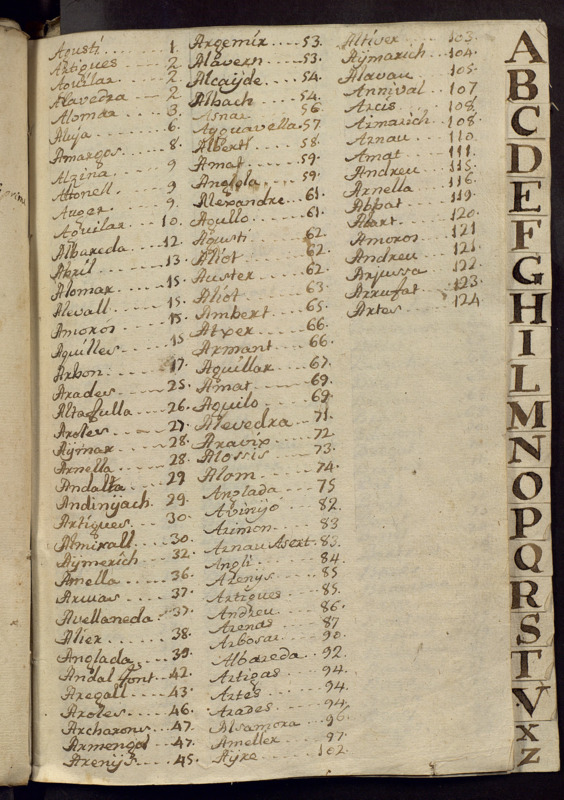 Agustí 1.
Artigues 2
Aguilar 2
Alavedra 2
Alomar 3.
Aluja 6.
Amargos 8
Alzina 9
Attonell 9
Auger 9.
Aguilar 10.
Albareda 12.
Abril 13.
Alomar 15.
Alevall 15.
Amoros 15.
Aguilles 15
Arbon 17.
Arades 25.
Altagulla 26.
Aroles 27.
Aymar 28.
Arnella 28.
Andalta 29
Andinyach 29.
Artigues 30.
Almirall 30.
Aymerich 32.
Amella 36.
Armas 37.
Avellaneda 37.
Alier 38.
Anglada 39.
Andal font 42.
Aregall 43.
Aroles 46.
Archarons 47.
Armengol 47.
Arenys 45.
Argemir 53.
Alavern 53.
Alcayde 54.
Albach 54.
Asnar 56
Ayguavella 57.
Albertí 58.
Amat 59.
Anglola 59.
Alexandre 61.
Agullo 61.
Agusti 62
Aliot 62.
Auster 62.
Aliot 63
Ambert 65.
Atxer 66.
Armant 66.
Aguillar 67.
Amat 69.
Aguilo 69.
Alevedra 71.
Aravix 72
Alossis 73.
Alom 74.
Anglada 75
Abinyó 82.
Arimon 83
Arnau Asert 83.
Angli 84.
Arenys 85
Artigues 85.
Andreu 86.
Arenas 87
Arbosar 90.
Albareda 92.
Artigas 94.
Artés 94.
Arades 94.
Alsamora 96.
Ameller 97.
Ayre 102.
Altiver 103.
Aymarich 104.
Alavau 105.
Annival 107
Arcis 108.
Armarich 108.
Arnau 110.
Amat 111.
Andreu 115.
Arnella 116.
Abbat 119.
Abart 120.
Amoros 121
Andreu 121.
Anjussa 122.
Arrufat 123.
Artes 124
A
B
C
D
E
F
G
H
I
L
M
N
O
P
Q
R
S
T
V
X
Z